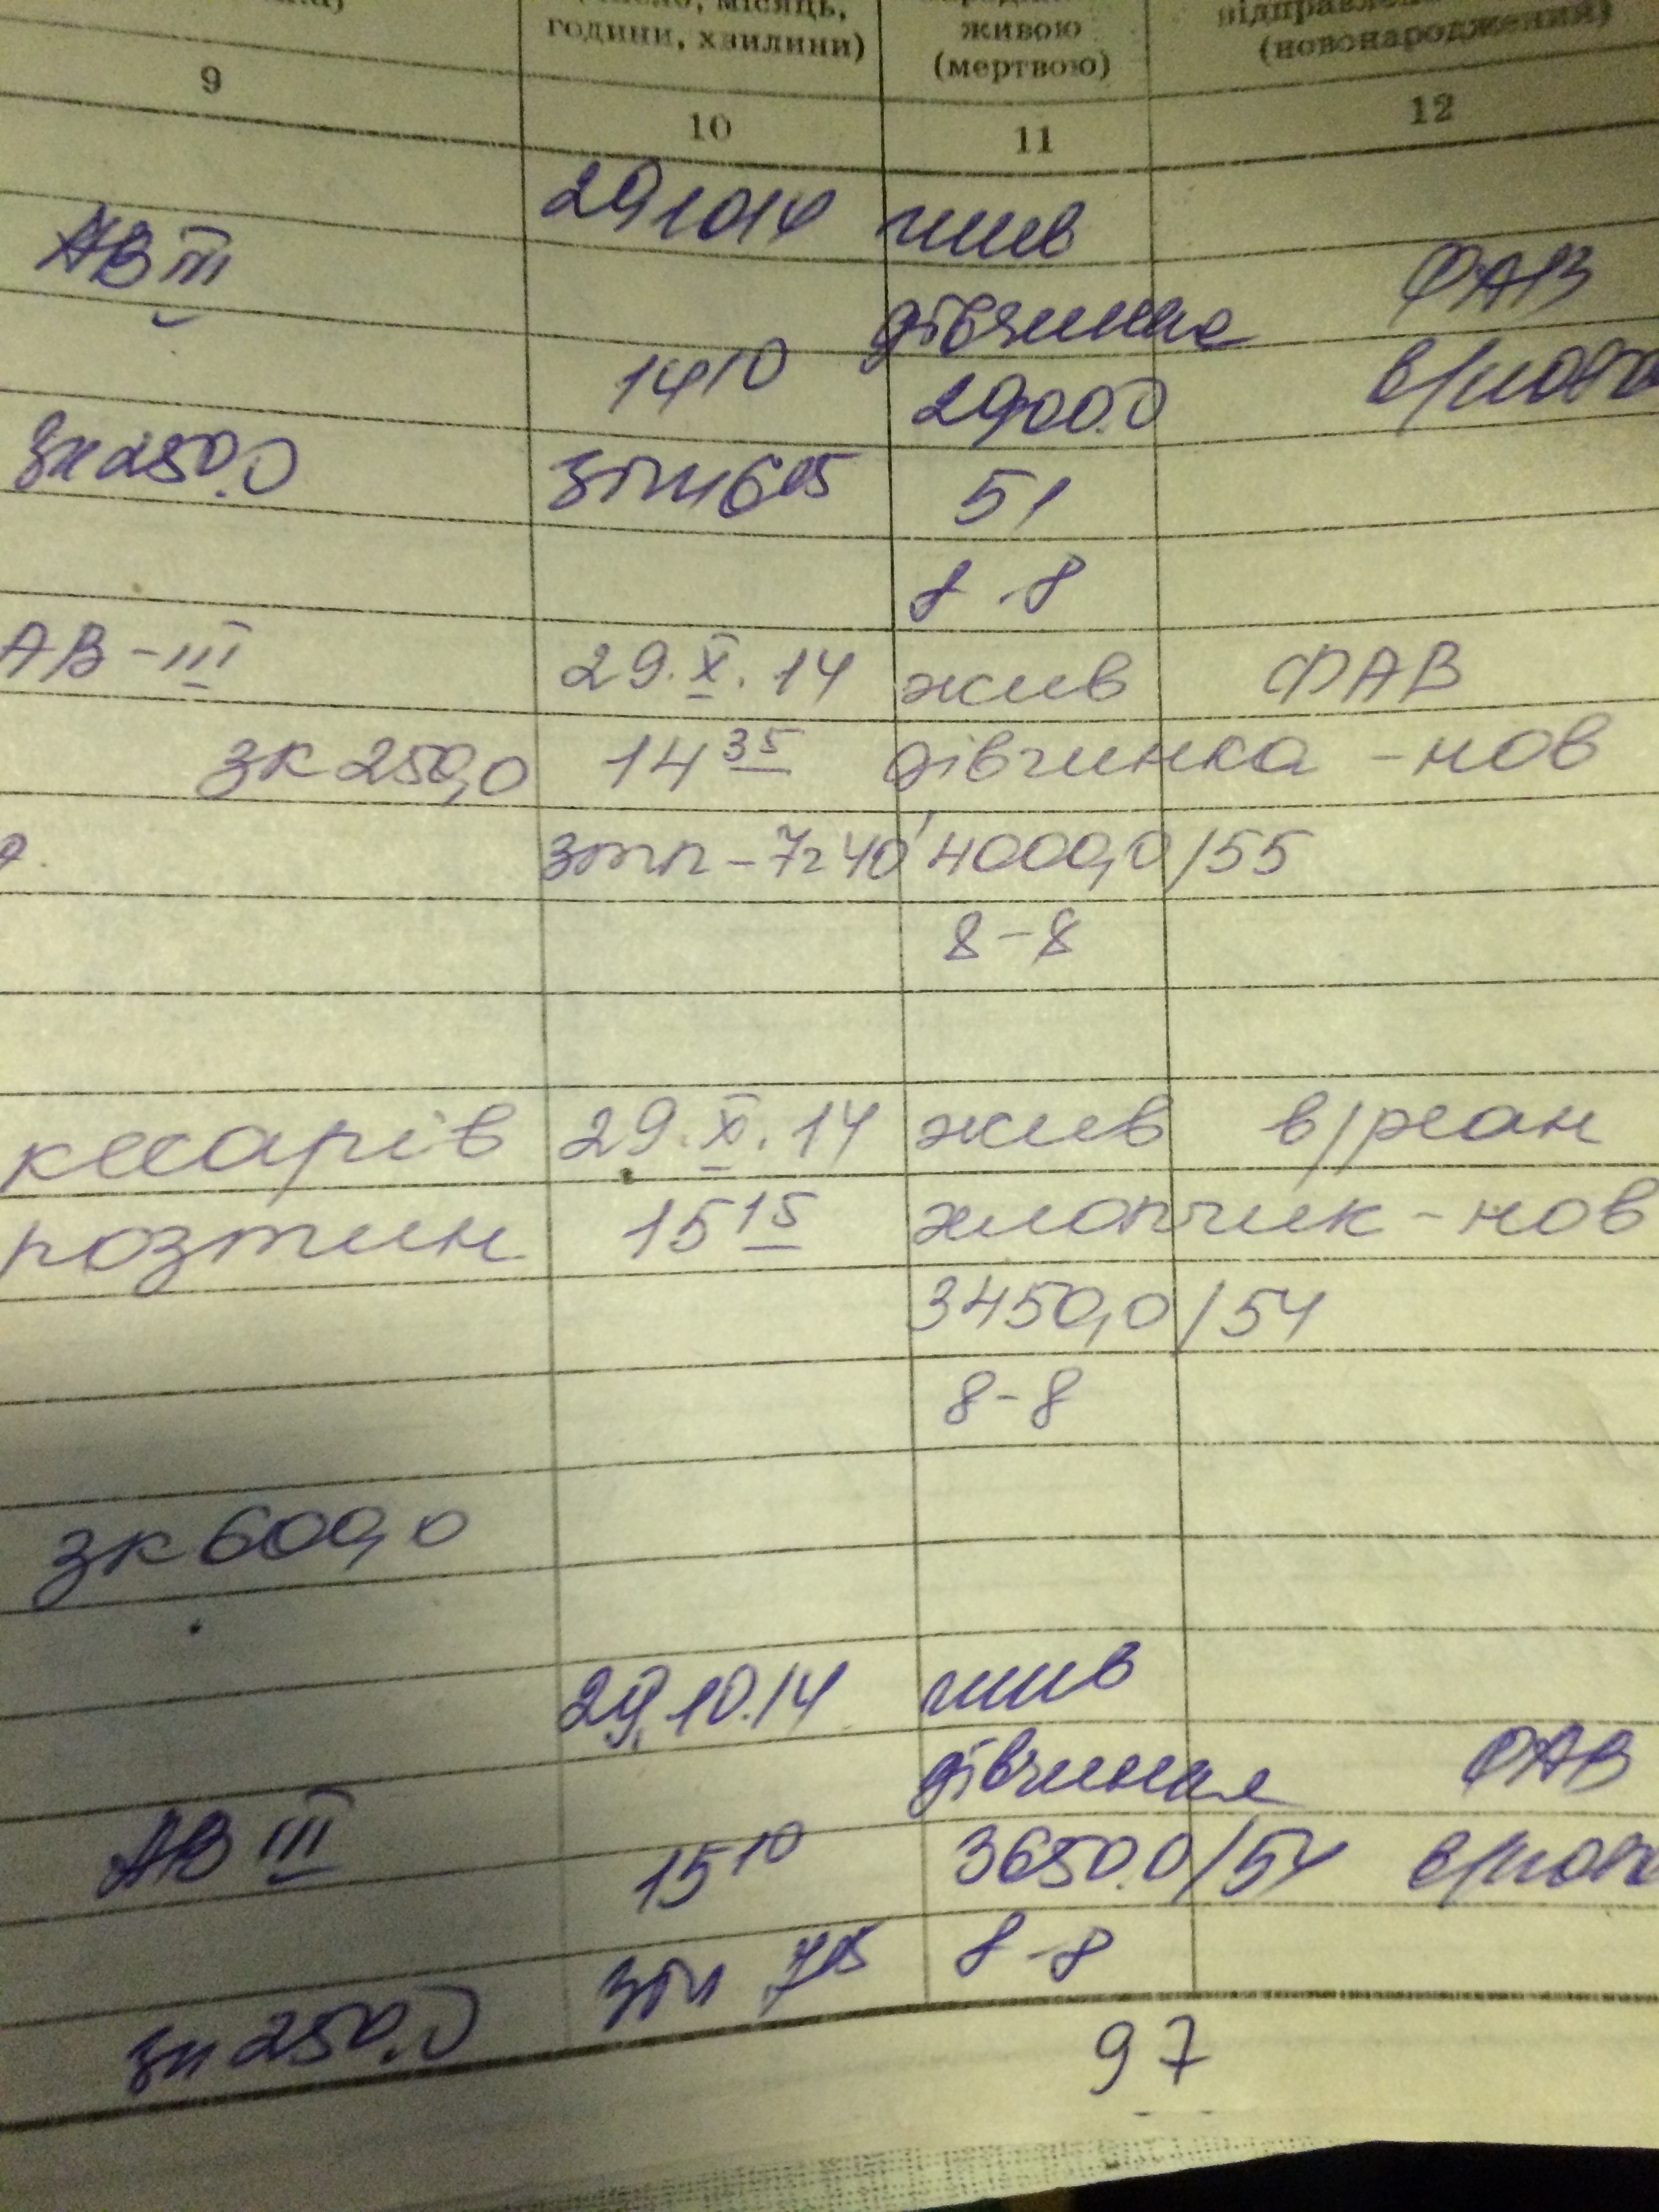 місяць,
години, хвилини)
живою
(мертвою)
(новонароджений)
9 10 11 12
29 10 14 жив
АВ III ФАВ
дівчинка
14 10 2900.0
зк 250.0 51
8-8
АВ-III 29.X.14 жив ФАВ
зк 250,0 14 35 дівчинка -нов
зтп-7г 40' 4000,0/55
8-8
кесарів 29.X.14 жив в/реан
розтин 15 15 хлопчик-нов
3450,0/54
8-8
зк 600,0
29.10.14 жив
дівчинка ФАВ
АВ III 15 10 3650.0/54
8-8
зк 250.0
97